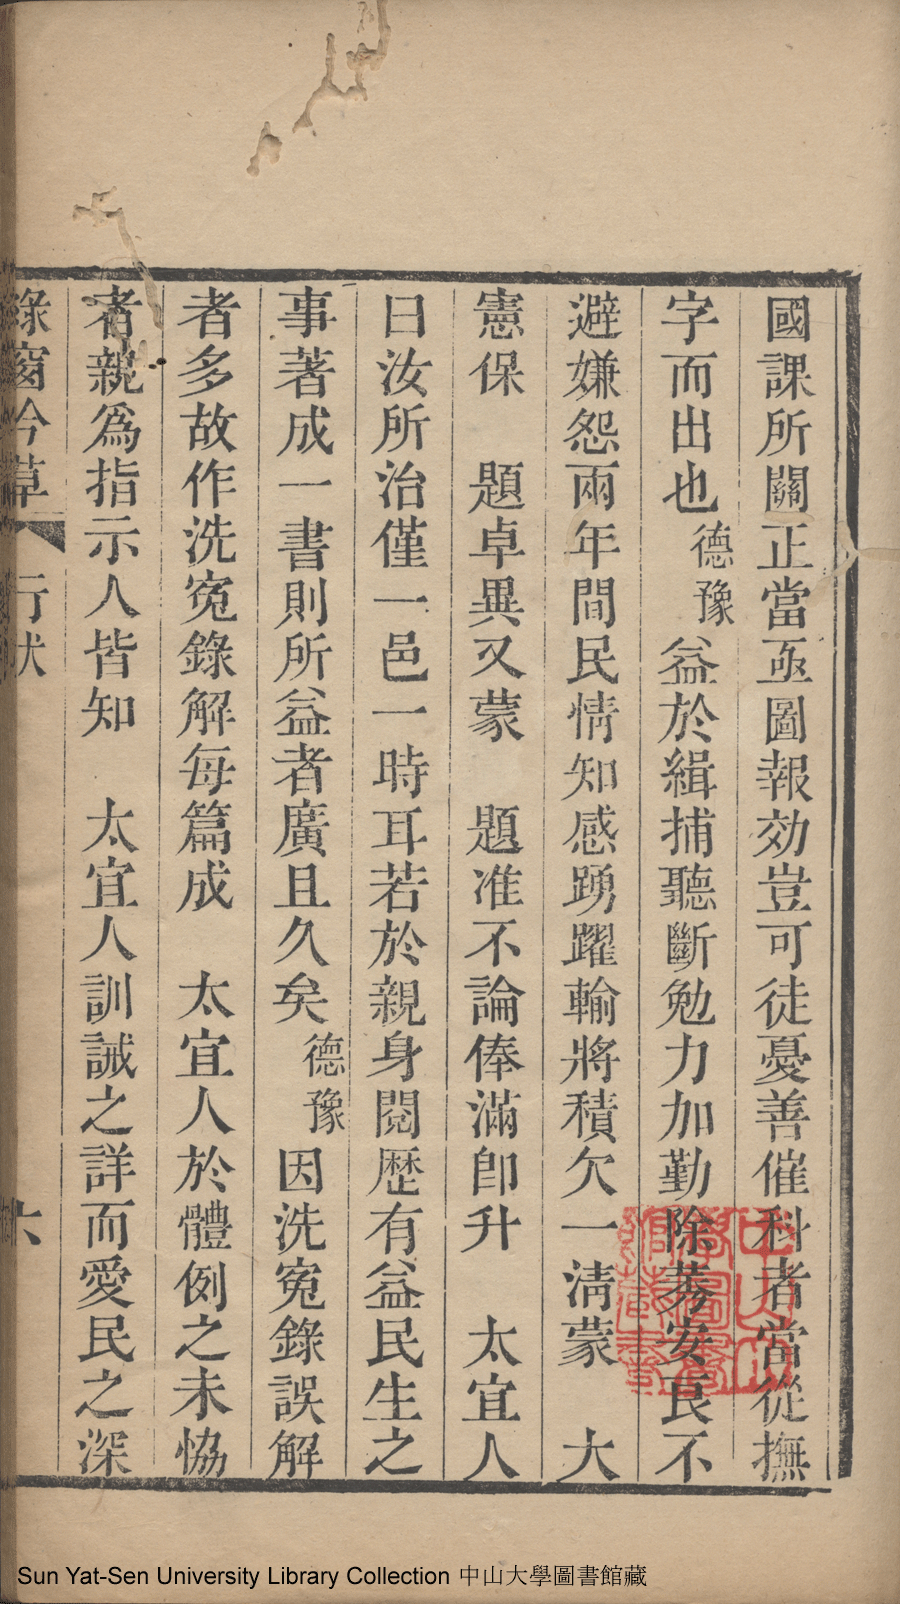 國課所關正當亟圖報効豈可徒憂善催科者當從撫
字而出也德豫益於緝捕聽斷勉力加勤除莠安良不
避嫌怨兩年間民情知感踴躍輸將積欠一淸蒙　大
憲保　題卓異又蒙　題准不論俸滿卽升　太宜人
曰汝所治僅一邑一時耳若於親身閱歷有益民生之
事著成一書則所益者廣且久矣德豫因洗寃錄誤解
者多故作洗寃錄解每篇成　太宜人於體例之未恊
者親爲指示人皆知　太宜人訓誡之詳而愛民之深
綠窗今草　行狀　六
Sun Yat-Sen University Library Collection 中山大學圖書館藏